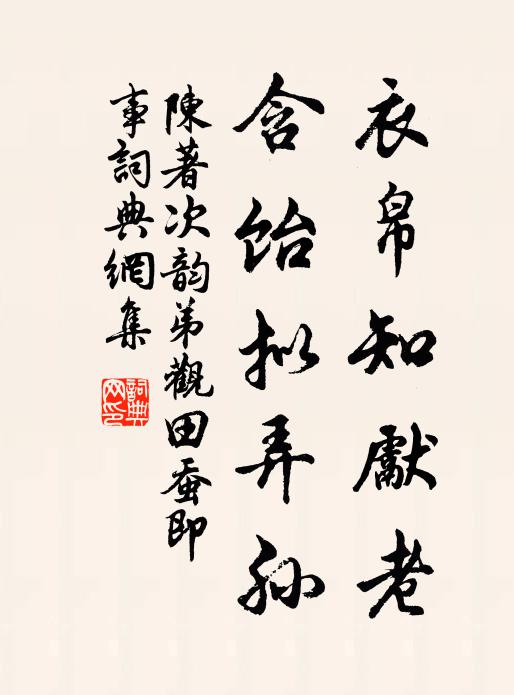 衣帛知獻老
含飴擬弄孫
陳著次韵弟觀田蚕即
事詞典網集
詞典网印